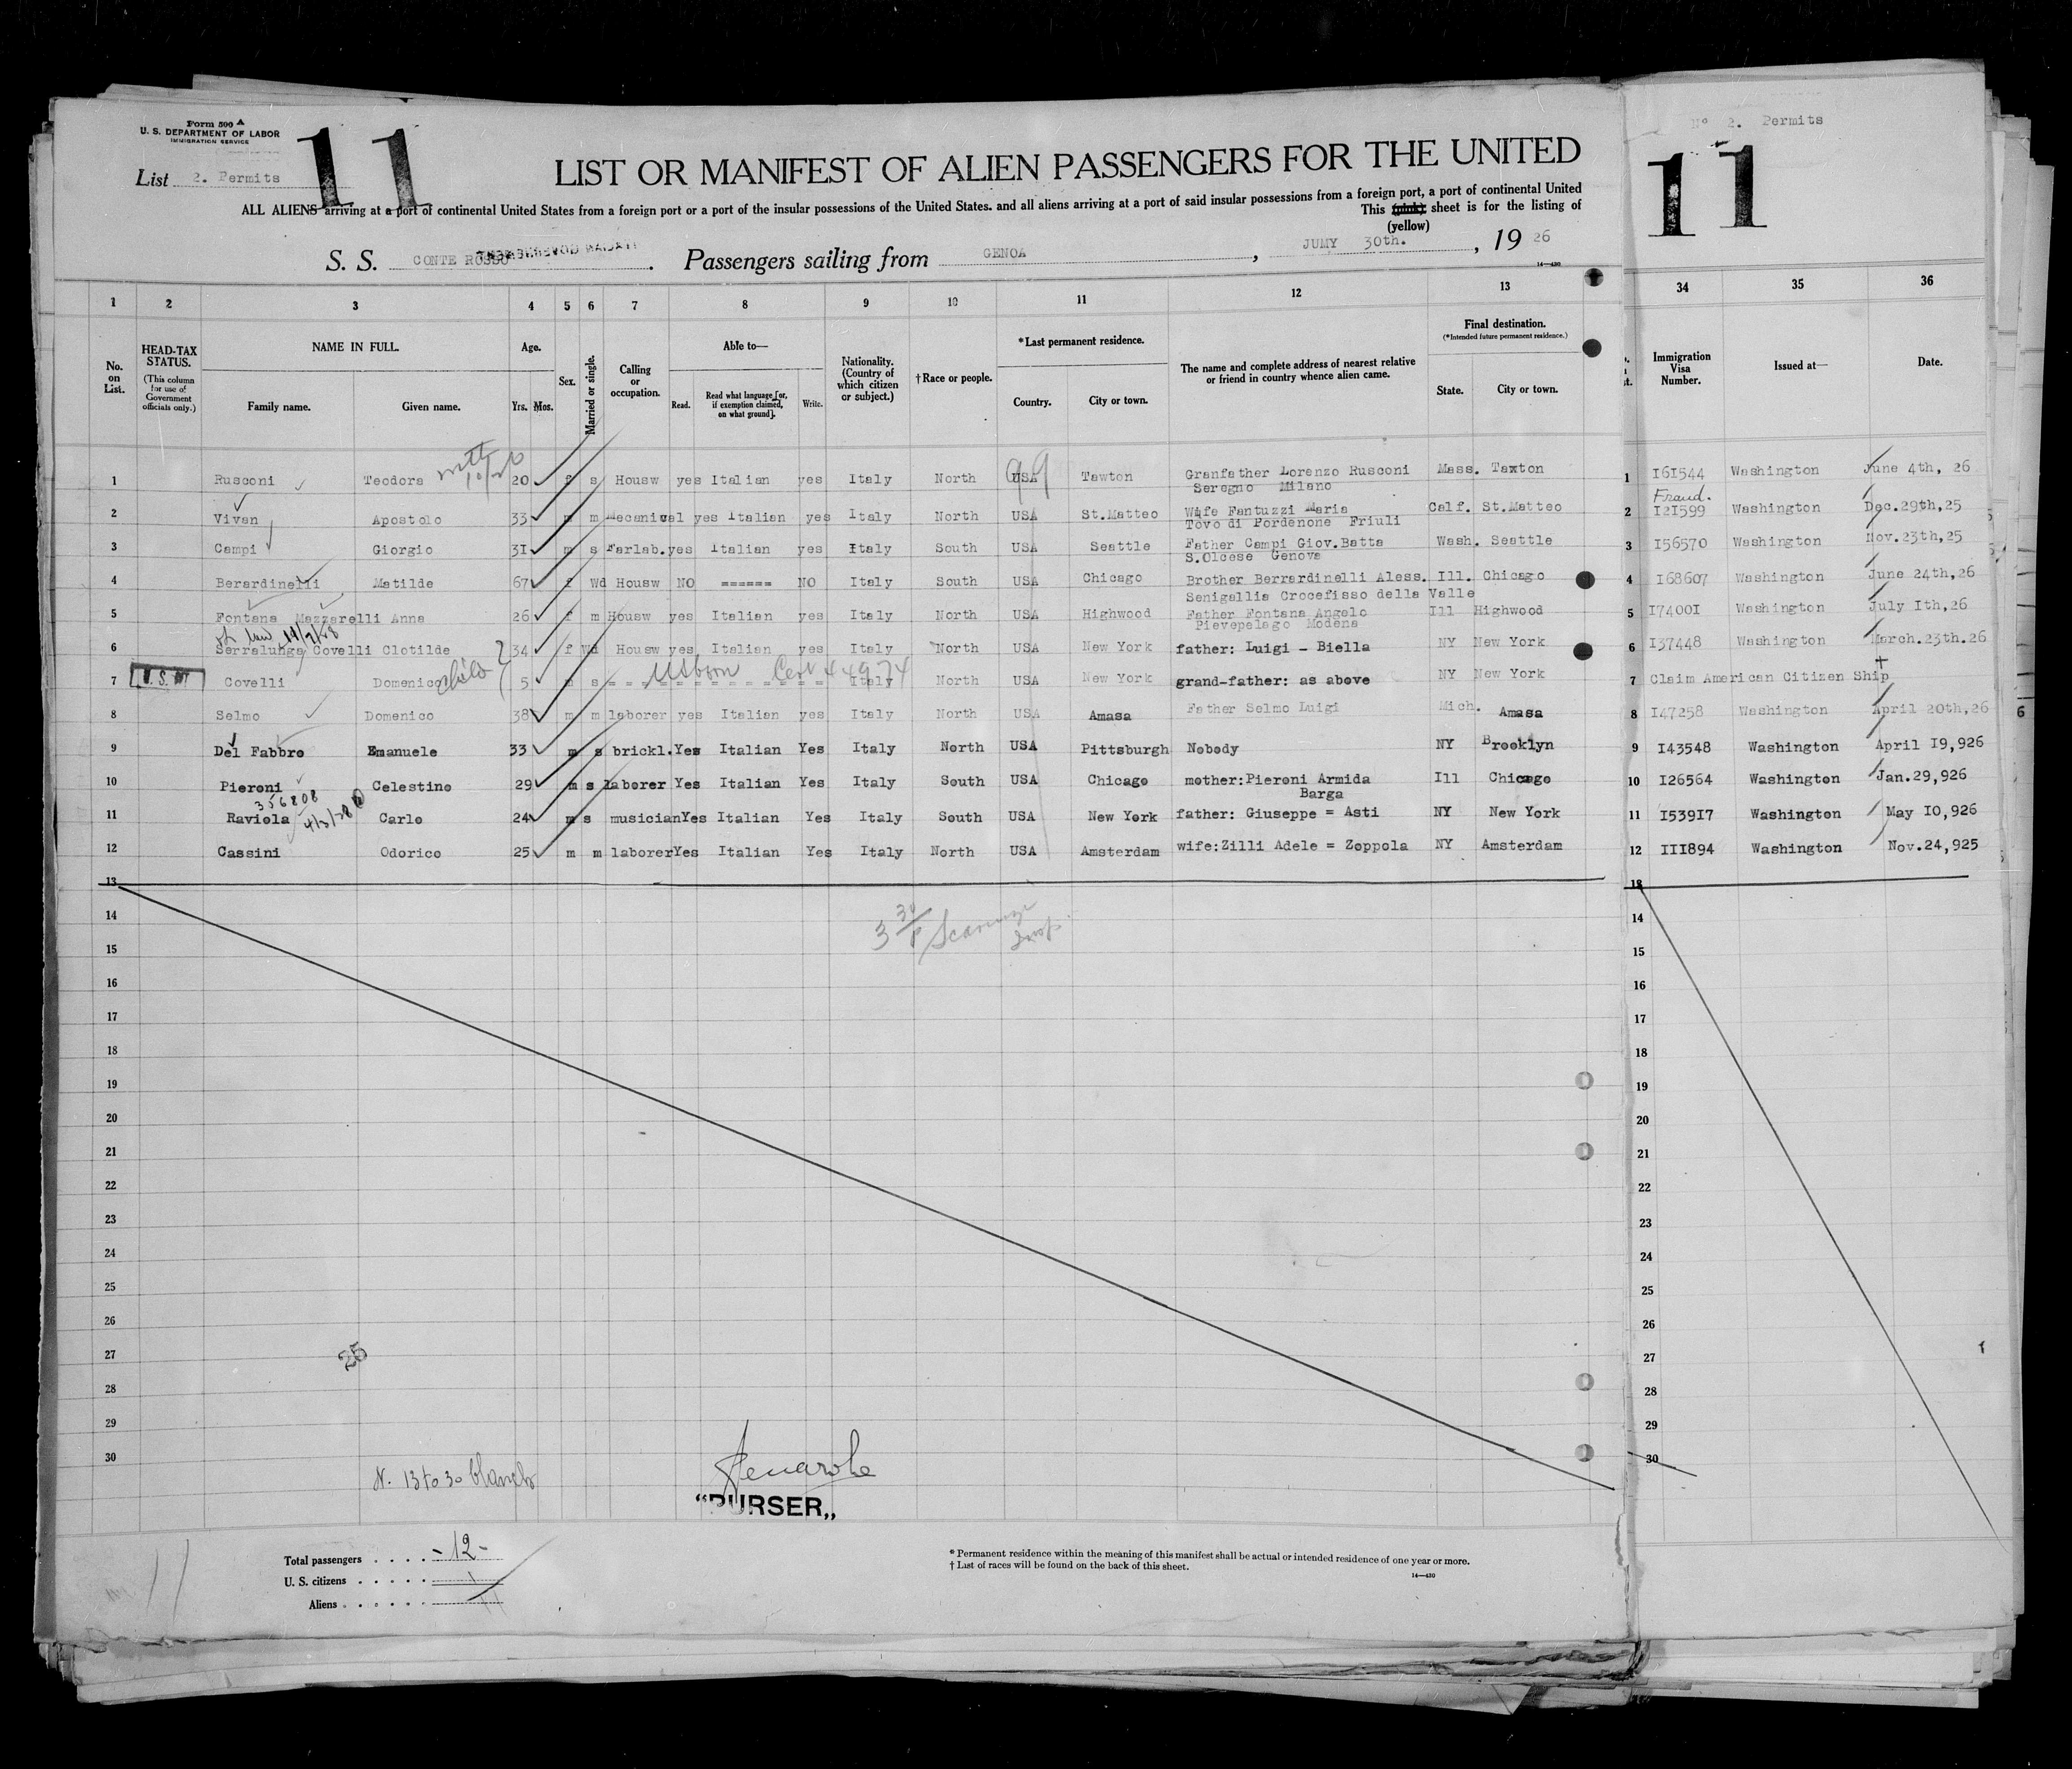 Form 500 A
U. S. DEPARTMENT OF LABOR
IMMIGRATION SERVICE
List 2. Permits
11
LIST OR MANIFEST OF ALIEN PASSENGERS FOR THE UNITED
ALL ALIENS arriving at a port of continental United States from a foreign port or a port of the insular possessions of the United States. and all aliens arriving at a port of said insular possessions from a foreign port, a port of continental United
This (pink) sheet is for the listing of
(yellow)
S. S. CONTE ROSSO. Passengers sailing from GENOA, JUMY 30th., 19 26
14—430
Nº 2. Permits
11
1 2 3 4 5 6 7 8 9 10 11 12 13 34 35 36
No. on List.
HEAD-TAX STATUS.
(This column for use of Government officials only.)
NAME IN FULL.
Family name. Given name.
Age.
Yrs. Mos.
Sex.
Married or single.
Calling or occupation.
Able to—
Read. Read what language [or, if exemption claimed, on what ground]. Write.
Nationality. (Country of which citizen or subject.)
†Race or people.
*Last permanent residence.
Country. City or town.
The name and complete address of nearest relative or friend in country whence alien came.
Final destination.
(*Intended future permanent residence.)
State. City or town.
Immigration Visa Number.
Issued at—
Date.
1 Rusconi Teodora 20 f s Housw yes Italian yes Italy North USA Tawton Granfather Lorenzo Rusconi Mass. Taxton 1 I61544 Washington June 4th, 26
Seregno Milano
Fraud.
2 Vivan Apostolo 33 m m Mecanical yes Italian yes Italy North USA St.Matteo Wife Fantuzzi Maria Calf. St.Matteo 2 I2I599 Washington Dec.29th,25
Tovo di Pordenone Friuli
3 Campi Giorgio 3I m s Farlab. yes Italian yes Italy South USA Seattle Father Campi Giov.Batta Wash. Seattle 3 I56570 Washington Nov.23th,25
S.Olcese Genova
4 Berardinelli Matilde 67 f Wd Housw NO ====== NO Italy South USA Chicago Brother Berrardinelli Aless. Ill. Chicago 4 I68607 Washington June 24th,26
Senigallia Crocefisso della Valle
5 Fontana Mazzarelli Anna 26 f m Housw yes Italian yes Italy North USA Highwood Father Fontana Angelo Ill Highwood 5 I7400I Washington July Ith,26
Pievepelago Modena
6 Serralunga Covelli Clotilde 34 f Wd Housw yes Italian yes Italy North USA New York father: Luigi - Biella NY New York 6 I37448 Washington March.23th.26
child US born Cert 44974
7 Covelli Domenico 5 m s Italy North USA New York grand-father: as above NY New York 7 Claim American Citizen Ship
8 Selmo Domenico 38 m m laborer yes Italian yes Italy North USA Amasa Father Selmo Luigi Mich. Amasa 8 I47258 Washington April 20th,26
9 Del Fabbro Emanuele 33 m s brickl. Yes Italian Yes Italy North USA Pittsburgh Nobody NY Brooklyn 9 I43548 Washington April I9,926
10 Pieroni Celestino 29 m s laborer Yes Italian Yes Italy South USA Chicago mother:Pieroni Armida Ill Chicago 10 I26564 Washington Jan.29,926
Barga
356808
11 Raviola 4/3/28 Carlo 24 m s musician Yes Italian Yes Italy South USA New York father: Giuseppe = Asti NY New York 11 I539I7 Washington May I0,926
12 Cassini Odorico 25 m m laborer Yes Italian Yes Italy North USA Amsterdam wife:Zilli Adele = Zoppola NY Amsterdam 12 III894 Washington Nov.24,925
13 13
14 14
15 15
16 16
17 17
18 18
19 19
20 20
21 21
22 22
23 23
24 24
25 25
26 26
27 27
28 28
29 29
30 30
25
N. 13 to 30 blanch
"PURSER„
Total passengers . . . . -12-
U. S. citizens . . . . . 1
Aliens . . . . . . 11
* Permanent residence within the meaning of this manifest shall be actual or intended residence of one year or more.
† List of races will be found on the back of this sheet.
14—430
11